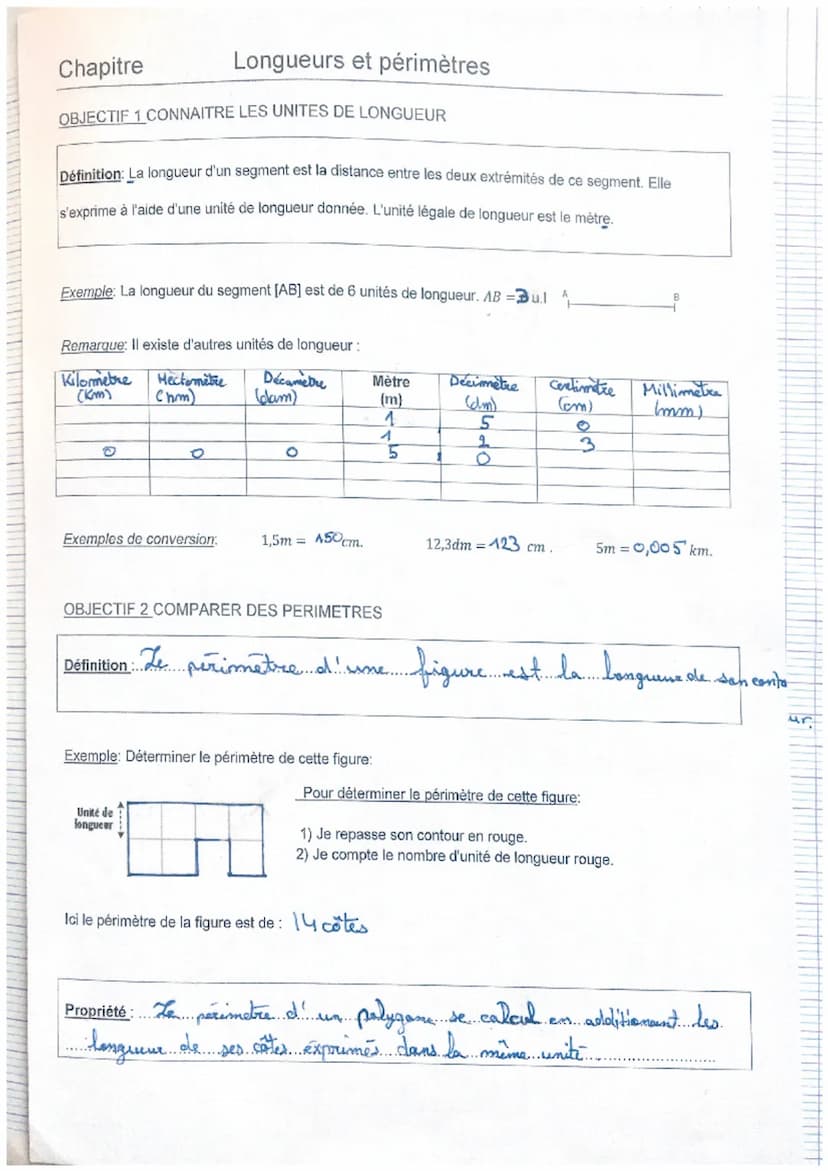 Chapitre Longueurs et périmètres
OBJECTIF 1 CONNAITRE LES UNITES DE LONGUEUR
Définition: La longueur d'un segment est la distance entre les deux extrémités de ce segment. Elle
s'exprime à l'aide d'une unité de longueur donnée. L'unité légale de longueur est le mètre.
Exemple: La longueur du segment [AB] est de 6 unités de longueur. AB = 3 u.l A B
Remarque: Il existe d'autres unités de longueur :
Kilomètre Hectomètre Décamètre Mètre Décimètre Centimètre Millimètre
(Km) (hm) (dam) (m) (dm) (cm) (mm)
1, 5 0
1 2 3
0 0 0 5, 0
Exemples de conversion: 1,5m = 150 cm. 12,3dm = 123 cm . 5m = 0,005 km.
OBJECTIF 2 COMPARER DES PERIMETRES
Définition : Le périmètre d'une figure est la longueur de son conto
ur.
Exemple: Déterminer le périmètre de cette figure:
Pour déterminer le périmètre de cette figure:
Unité de
longueur
1) Je repasse son contour en rouge.
2) Je compte le nombre d'unité de longueur rouge.
Ici le périmètre de la figure est de : 14 côtes
Propriété : Le périmetre d'un polygone se calcul en additionant les
longueur de ses côtes éxprimés dans la même unité